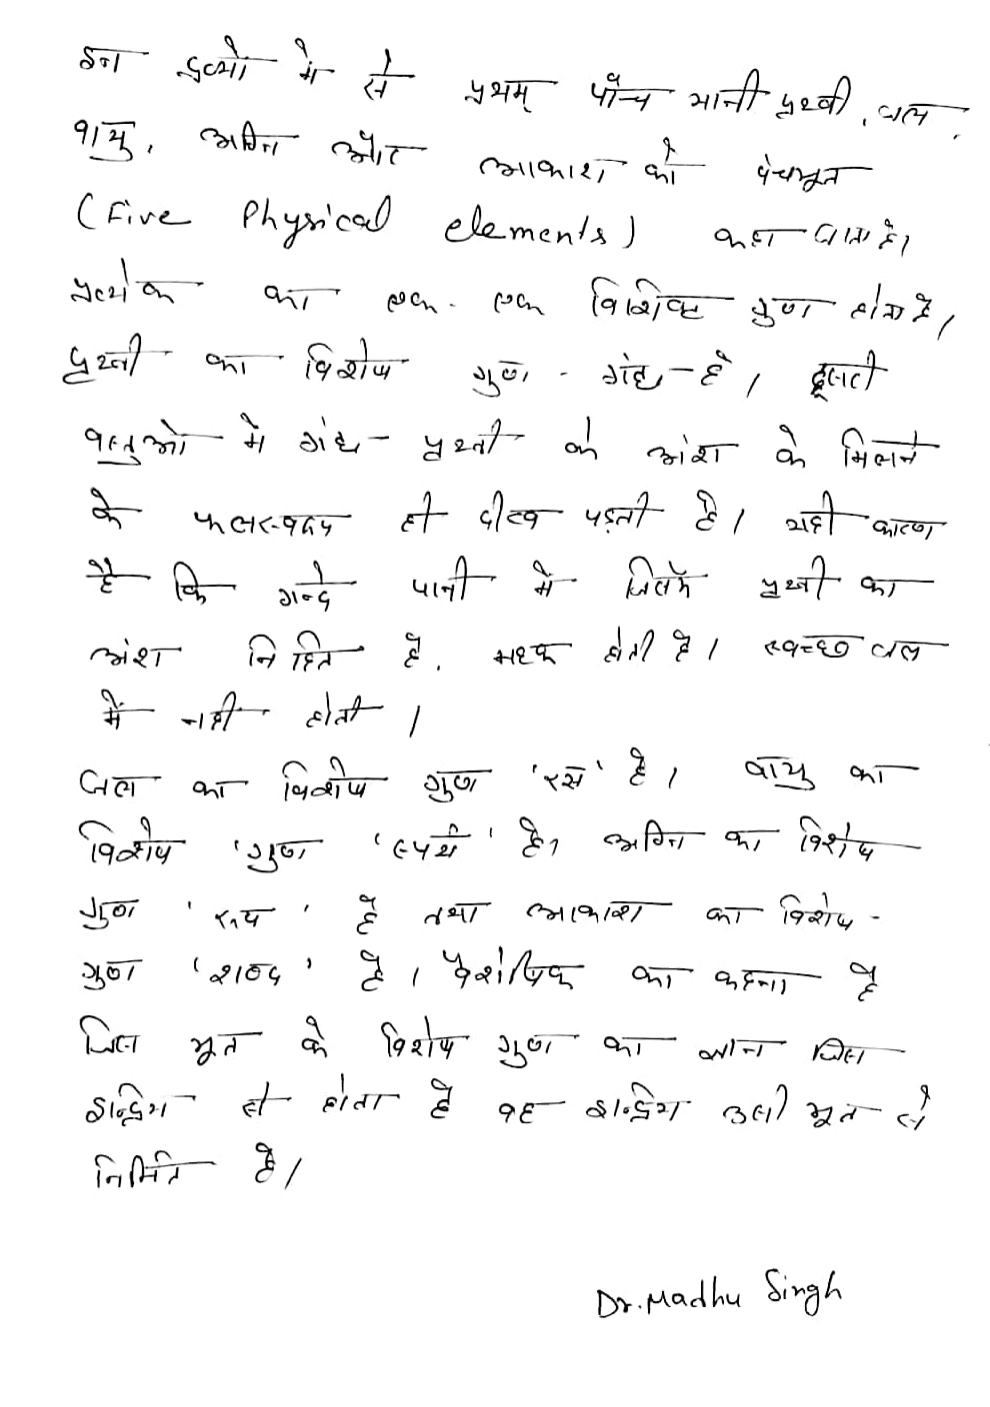 इन द्रव्यों में से प्रथम् पाँच यानी पृथ्वी, जल,
वायु, अग्नि और आकाश को पंचभूत
(Five Physical elements) कहा जाता है।
प्रत्येक का एक-एक विशिष्ट गुण होता है,
पृथ्वी का विशेष गुण - गंध - है, दूसरी
वस्तुओं में गंध - पृथ्वी के अंश के मिलने
के फलस्वरूप ही दीख पड़ती है। यही कारण
है कि गन्दे पानी में जिसमें पृथ्वी का
अंश निहित है, महक होती है। स्वच्छ जल
में नहीं होती।
जल का विशेष गुण 'रस' है। वायु का
विशेष 'गुण 'स्पर्श' है, अग्नि का विशेष
गुण 'रूप' है तथा आकाश का विशेष -
गुण 'शब्द' है। वैशेषिक का कहना है
जिस भूत के विशेष गुण का ज्ञान जिस
इन्द्रिय से होता है वह इन्द्रिय उसी भूत से
निर्मित है।
Dr. Madhu Singh